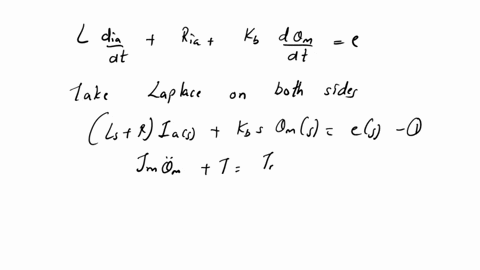 L dia/dt + Ria + Kb dθm/dt = e
Take Laplace on both sides
(Ls + R) Ia(s) + Kb s θm(s) = e(s) - ①
Jm θ̈m + T = Tr